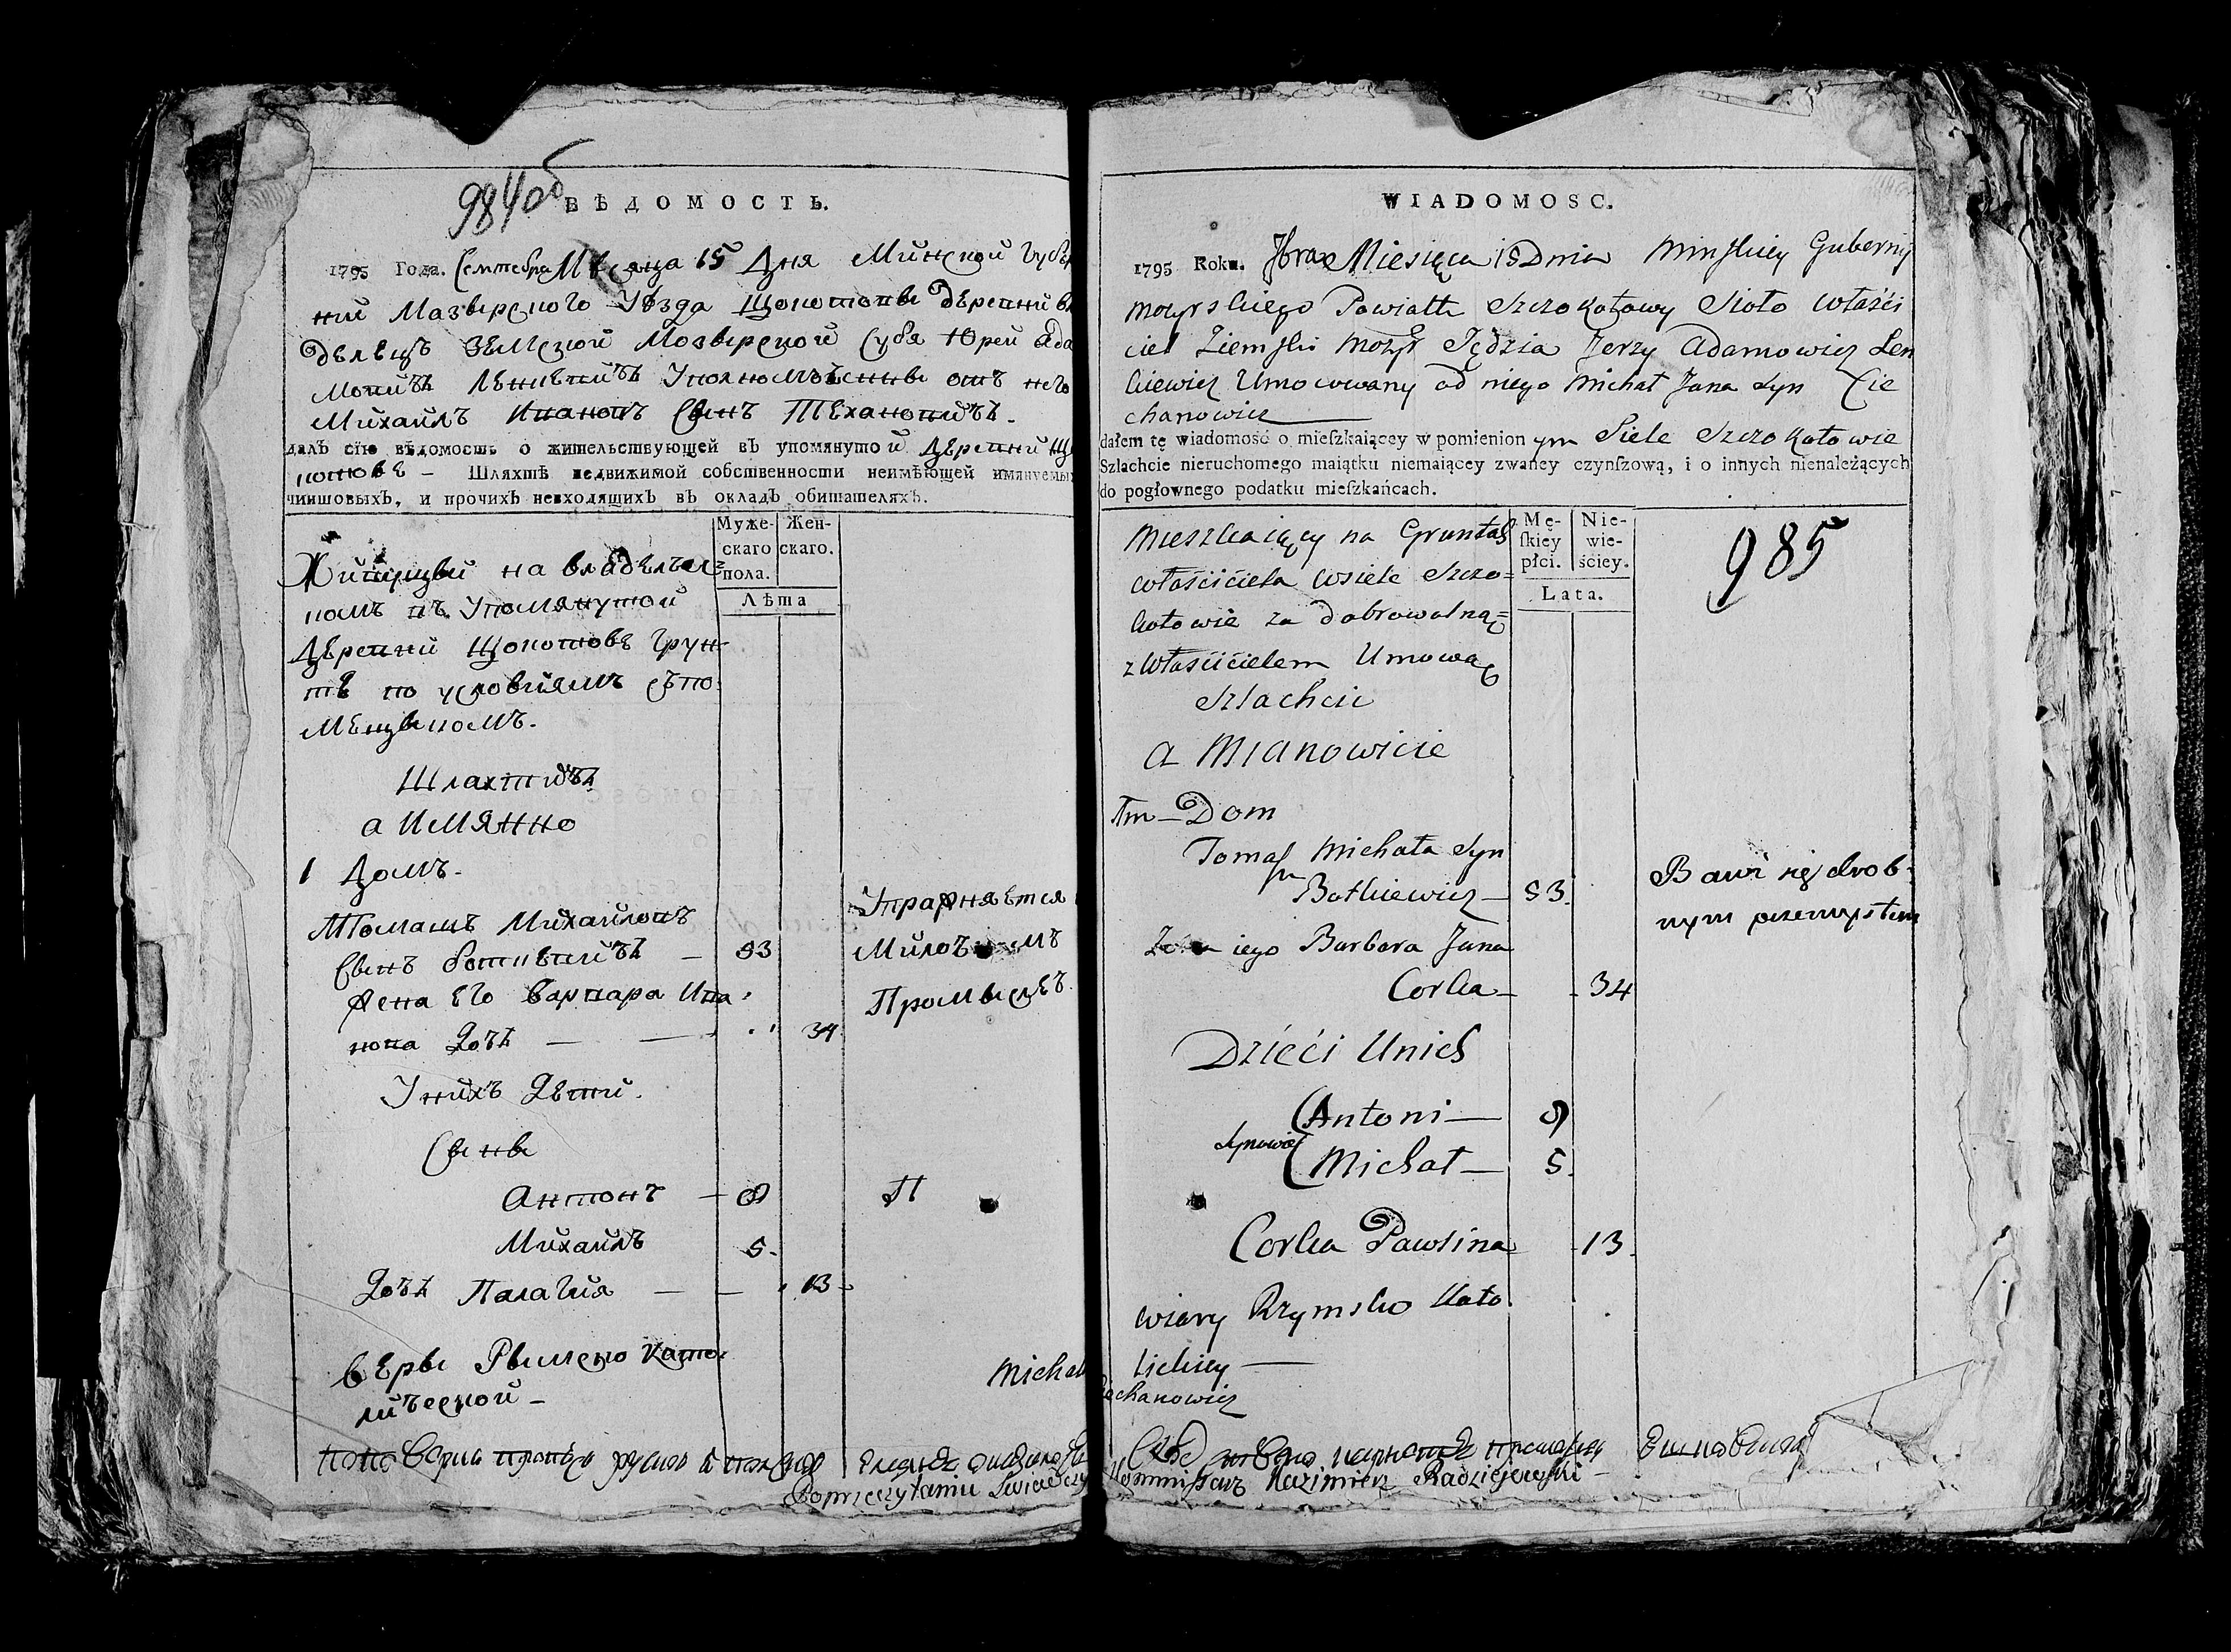 984об
ВѢДОМОСТЬ.
1795 Года. Семтебра Мѣсяца 15 Дня Минской Губѣр
нии Мазырского Уѣзда Щокотовы дѣревни вла
дѣлецъ Земской Мозырской Судя Юрей Ада
мовичъ Лѣнкевичъ Уполномоченны отъ него
Михайлъ Ивановъ Сынъ Тѣхановичъ.
далъ сїю вѣдомость о жительствующей въ упомянутой Дѣревни Що
котовѣ — Шляхтѣ недвижимой собственности неимѣющей имянуемых
чиншовыхъ, и прочихъ невходящихъ въ окладъ обитателяхъ.
Муже- Жен-
скаго скаго.
пола.
Лѣта
Живущы на владѣлъче
комъ въ Упомянутой
Дѣревни Щокотовѣ Грун-
тѣ по условиямъ съ по
мещыкомъ.
Шляхтичъ
а Имянно
1 Домъ.
Томашъ Михайловъ
Сынъ Боткѣвичъ — 53
Жена Его Варвара Ива
нова Дочь — — 34
Упражняется
Милочнымъ
Промыслъ
У нихъ Дѣти.
Сыны
Антонъ — 9
Михайлъ 5.
П
Дочь Палагия — — 13
вѣры Рымско Като
лической —
Michał
Po przeczytaniu Swiadczy
WIADOMOSC.
1795 Roku. 7bra Miesięca 15 Dnia Minskiey Guberny
Mozyrskiego Powiatu Szczokotowy Sioło Właści
ciel Ziemski Mozyr Sędzia Jerzy Adamowicz Len
kiewicz Umocowany od niego Michał Jana Syn Cie
chanowicz
dałem tę wiadomość o mieſzkaiącey w pomienionym Siele Szczokotowie
Szlachcie nieruchomego maiątku niemaiącey zwaney czynſzową, i o innych nienależących
do pogłownego podatku mieſzkańcach.
Mę- Nie-
ſkiey wie-
płci. ściey.
Lata.
985
Mieszkaiący na Gruntach
właściciela wsiele Szczo=
kotowie za dobrowolną=
z właścicielem Umową
Szlachcic
a Mianowicie
1m — Dom
Tomasz Michała Syn
Botkiewicz — 53.
Bawi się drob-
nym przemysłem
Zona iego Barbara Jana
Corka — 34
Dzieci Unich
Antoni — 9
Synowie
Michał — 5.
Corka Pawlina 13.
wiary Rzymsko Kato
lickiey —
Ciechanowicz
Kommissarz Kazimierz Radziejewski